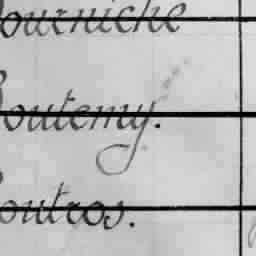 ourniche
outemy.
outros.